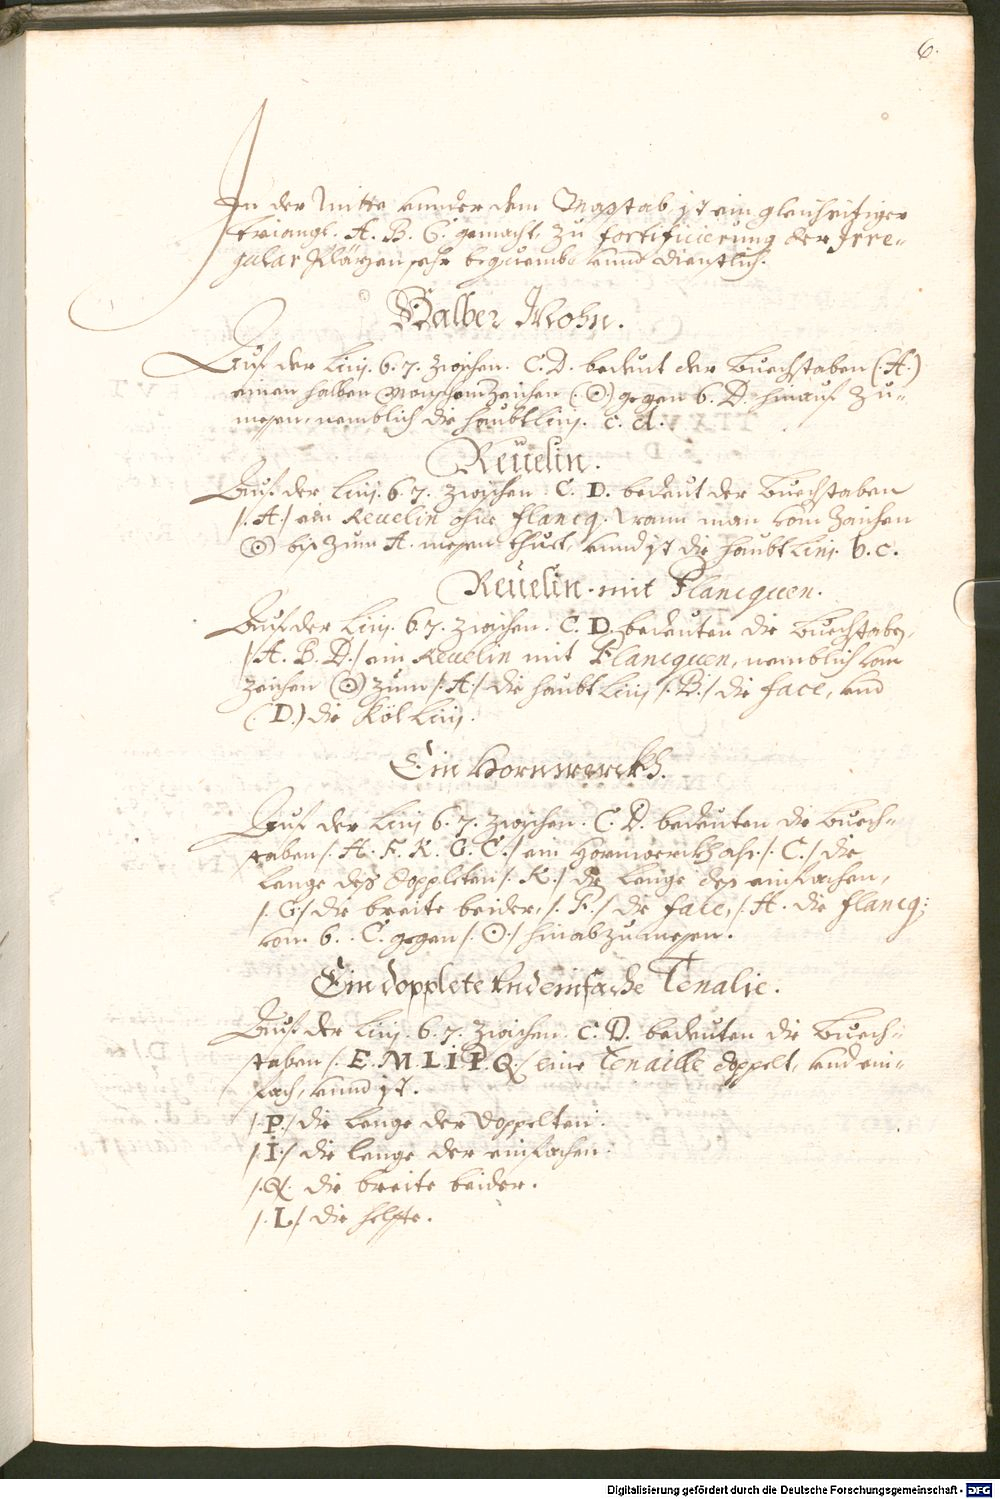 6.
In der Mitte vnnder dem Maßtab ist ein gleichseitiger
triangl. A. B. C. gemacht, zu fortificierung der Irre-
gular Pläzen sehr bequemb vnnd dienstlich.
Halber Mohn.
Auf der Linj. 6. 7. zwischen. C. D. bedeut der Buechstaben (.A.)
einen halben Mon, vom Zeichen (.⊙.) gegen 6. D. hinauf zu-
meßen, nemblich die haubtlinj. c. d.
Reuelin.
Auf der Linj. 6. 7. zwischen. C. D. bedeut der Buechstaben
/. A./ ein Reuelin ohne flancq. Wann man vom Zeichen
(⊙) biß zum A. meßen thuet, vnnd ist die haubt Linj. b. c.
Reuelin. mit Flancquen.
Auf der Linj. 6. 7. zwischen. C. D. bedeuten die Buechstaben,
/. A. B. D./ ein Reuelin mit Flancquen, nemblich vom
zeichen (⊙) zum /. A./ die haubt Linj /. B./ die face, vnd
(. D.) die Köl Linj.
Ein Hornwerckh.
Auf der Linj 6. 7. zwischen. C. D. bedeuten die Buech-
staben /. H. F. K. G. C./ ein Hornwerckh als. /. C./ die
lenge deß doppleten /. K./ die lenge deß einfachen,
/. G./ die breite beider, /. F./ die face, /. H. die flancq;
von. 6. . C. gegen /. ⊙./ hinabzumeßen.
Ein dopplete vnd einfache Tenalie.
Auf der Linj. 6. 7. zwischen. C. D. bedeuten die Buech-
staben /. E. M. L. I. P. Q./ eine Tenaille doppelt, vnd ein-
fach, vnnd ist.
/. P./ die lenge der Doppelten.
/. I./ die lenge der einfachen.
/. Q. die breite beider.
/. L./ die helffte.
Digitalisierung gefördert durch die Deutsche Forschungsgemeinschaft - DFG